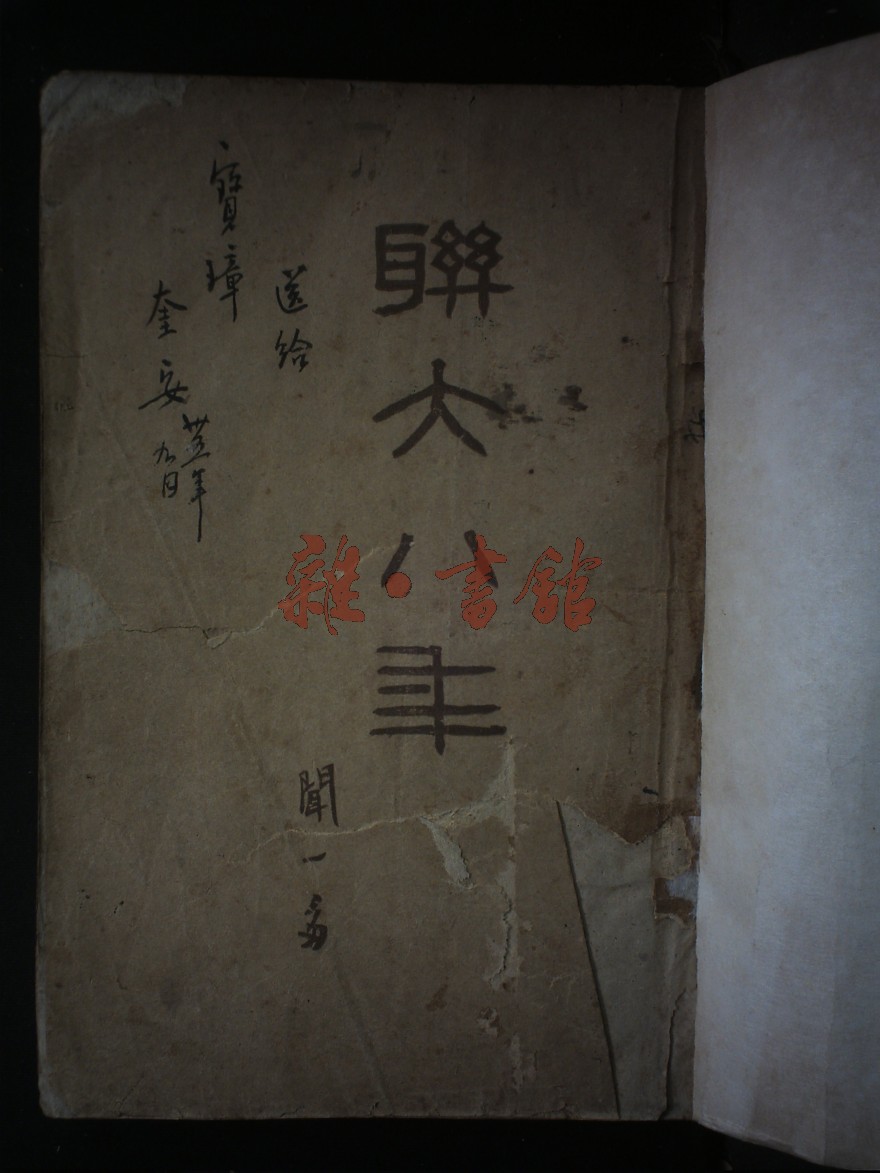 聯大八年
聞一多
送給
寶璋
奎安
卅五年
九月
雜·書館